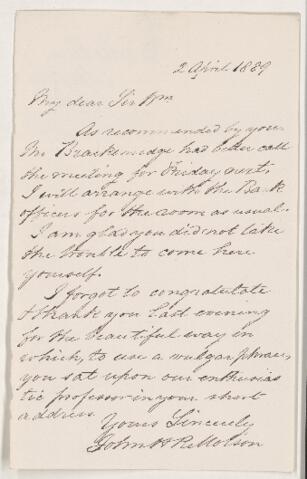 2 April 1889
My dear Sir Wm
As recommended by you
Mr Brackenridge had better call
the meeting for Friday next.
I will arrange with the Bank
officers for the room as usual.
I am glad you did not take
the trouble to come here
yourself.
I forgot to congratulate
& thank you last evening
for the beautiful way in
which, to use a vulgar phrase,
you sat upon our enthusias
tic professor in your short
address
Yours Sincerely
John H R Molson